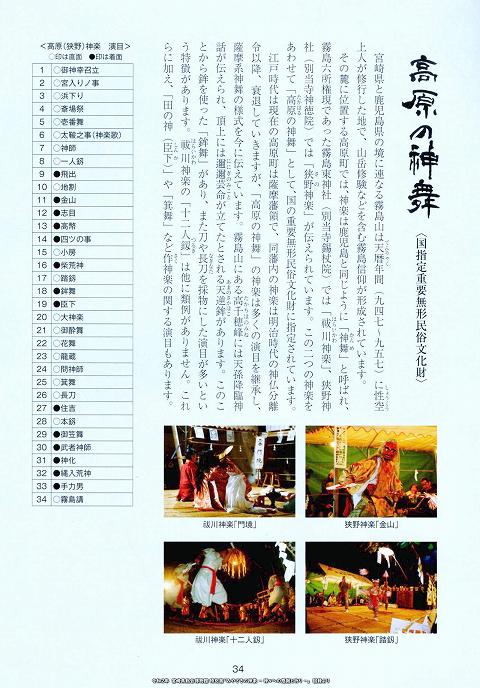 高原の神舞
〈国指定重要無形民俗文化財〉
宮崎県と鹿児島県の境に連なる霧島山は天暦年間(九四七〜九五七)に性空
上人が修行した地で、山岳修験などを含む霧島信仰が形成されています。
その麓に位置する高原町では、神楽は鹿児島と同じように「神舞」と呼ばれ、
霧島六所権現であった霧島東神社(別当寺錫杖院)では「祓川神楽」、狭野神
社(別当寺神徳院)では「狭野神楽」が伝えられています。この二つの神楽を
あわせて「高原の神舞」として、国の重要無形民俗文化財に指定されています。
江戸時代は現在の高原町は薩摩藩領で、同藩内の神楽は明治時代の神仏分離
令以降、衰退していきますが、「高原の神舞」の神楽は多くの演目を継承し、
薩摩系神舞の様式を今に伝えています。霧島山にある高千穂峰には天孫降臨神
話が伝えられ、頂上には邇邇芸命が立てたとされる天逆鉾があります。このこ
とから鉾を使った「鉾舞」があり、また刀や長刀を採物にした演目が多いとい
う特徴があります。祓川神楽の「十二人剱」は他に類例がありません。これ
らに加え、「田の神(臣下)」や「箕舞」など作神楽の関する演目もあります。
<高原(狭野)神楽 演目>
○印は直面 ●印は着面
1 ○御神幸召立
2 ○宮入りノ事
3 ○浜下り
4 ○斎場祭
5 ○壱番舞
6 ○太鞁之事(神楽歌)
7 ○神師
8 ○一人剱
9 ●飛出
10 ○地割
11 ●金山
12 ●志目
13 ●高幣
14 ●四ツの事
15 ○小房
16 ●柴荒神
17 ○踏剱
18 ●鉾舞
19 ●臣下
20 ○大神楽
21 ○御酔舞
22 ○花舞
23 ○龍蔵
24 ○問神師
25 ○箕舞
26 ○長刀
27 ●住吉
28 ○本剱
29 ●御笠舞
30 ●武者神師
31 ●神化
32 ●縄入荒神
33 ●手力男
34 ○霧島講
祓川神楽「門境」
狭野神楽「金山」
祓川神楽「十二人剱」
狭野神楽「踏剱」
34